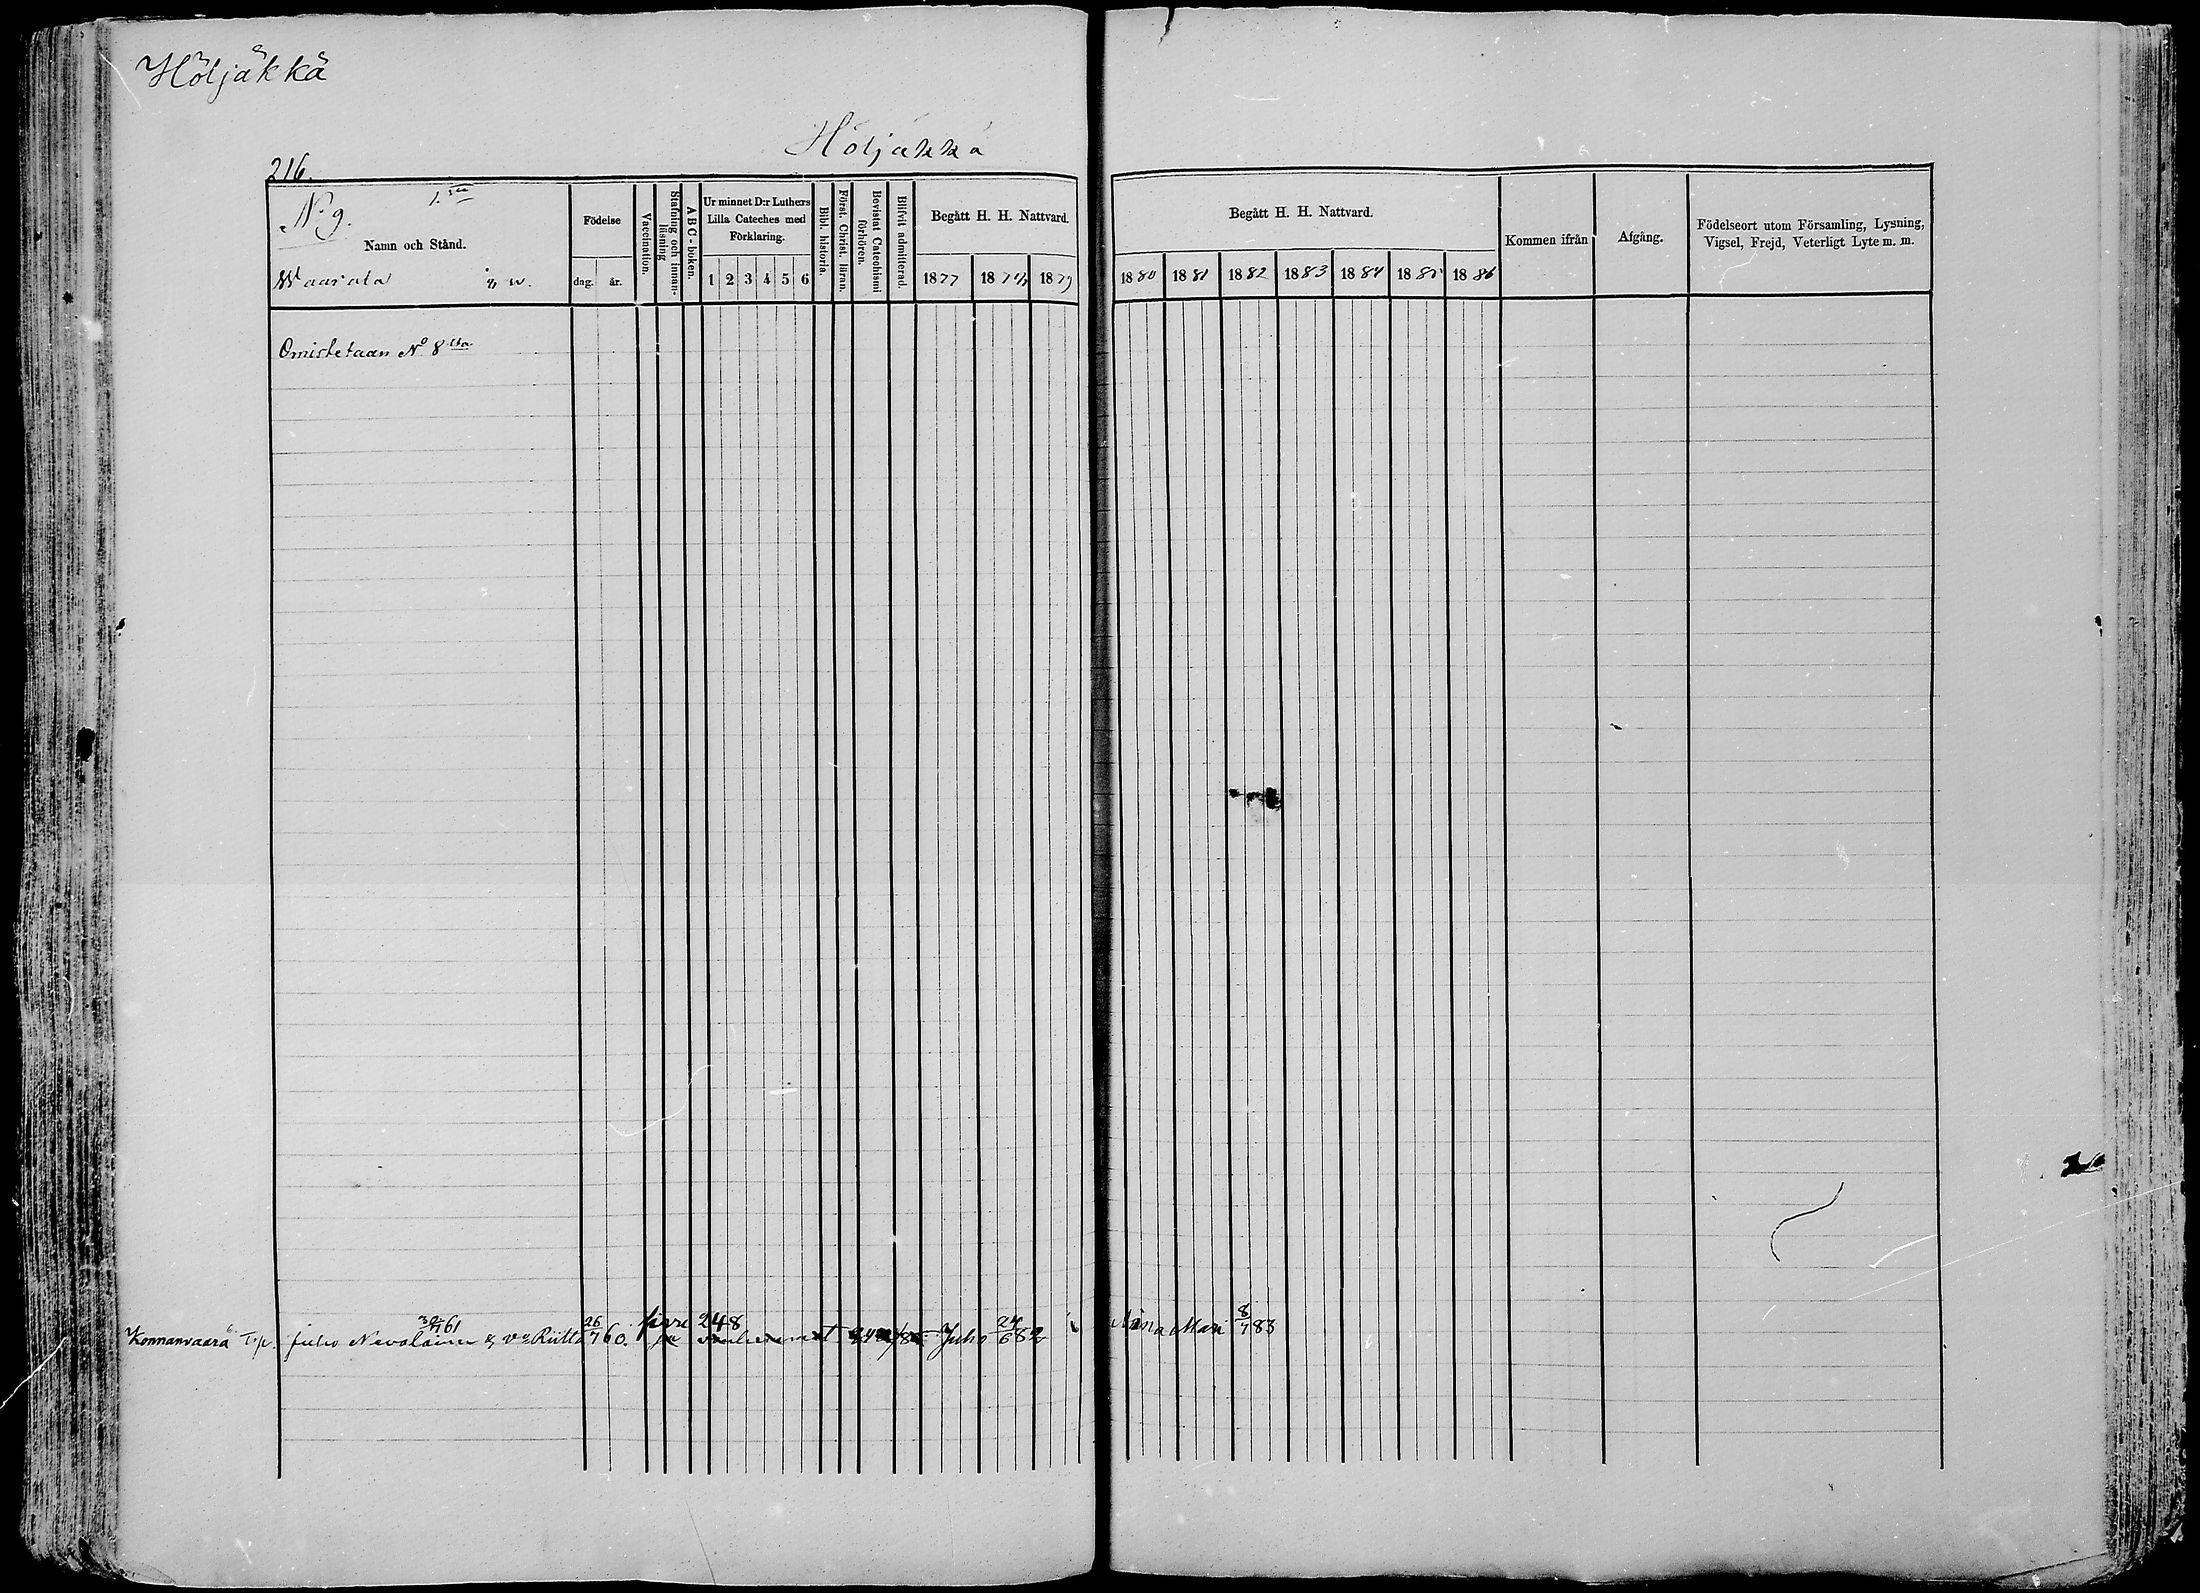 Höljäkkä
Höljäkkä
216.
No 9.
Namn och Stånd.
Waarala
Födelse
dng. år.
Vaccination.
Stafning och innanläsning
ABC-boken.
Ur minnet D:r Luthers Lilla Cateches med Förklaring.
1 2 3 4 5 6
Bibl. historia.
Först. Christ. läran.
Bevistat Catechismi förhören.
Blifvit admitterad.
Begått H. H. Nattvard.
1877 1878 1879
Begått H. H. Nattvard.
1880 1881 1882 1883 1884 1885 1886
Kommen ifrån
Afgång.
Födelseort utom Församling, Lysning, Vigsel, Frejd, Veterligt Lyte m. m.
Omistetaan No 8lta
30/7 61 26/7 60. 248 24/6 82 8/7 83
Konnanvaara Juho Nevalainen & v. Riitta Juho Mari